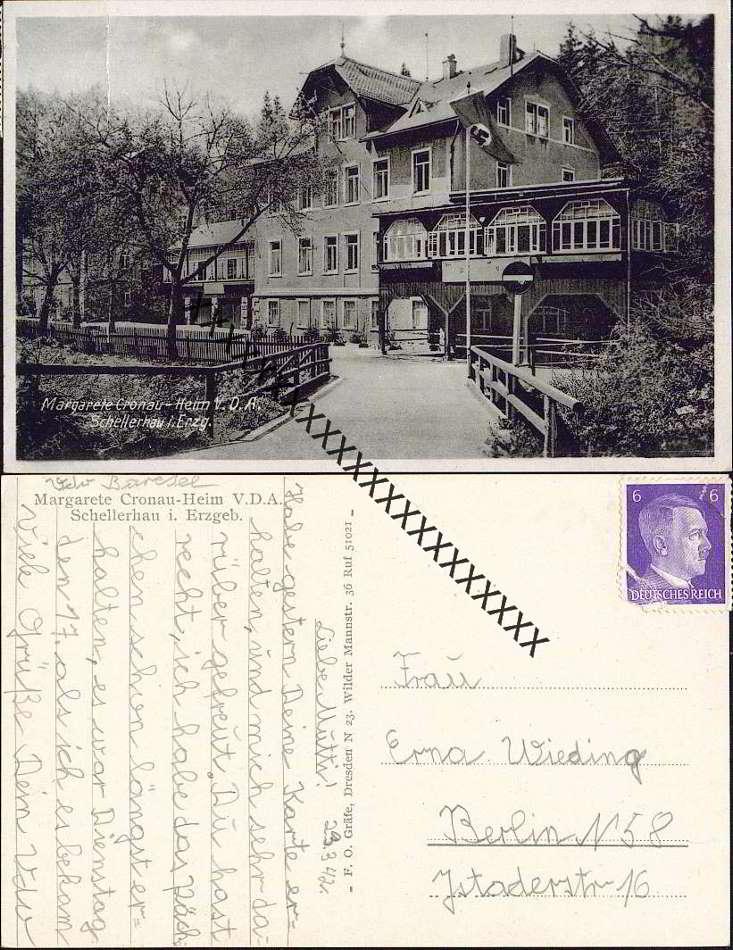 Margarete Cronau-Heim V.D.A.
Schellerhau i. Erzg.
Udo Baresel
Margarete Cronau-Heim V.D.A.
Schellerhau i. Erzgeb.
Liebe Mutti! 29.3.42.
Habe gestern Deine Karte er-
halten, und mich sehr da-
rüber gefreut. Du hast
recht, ich habe das Päck-
chen schon längst er-
halten, es war Dienstag
den 17. als ich es bekam
Viele Grüße Dein Udo
- F. O. Gräfe, Dresden N 23. Wilder Mannstr. 36 Ruf 51021 -
6 6
DEUTSCHES REICH
Frau
Erna Wieding
Berlin N58
Ystaderstr 16